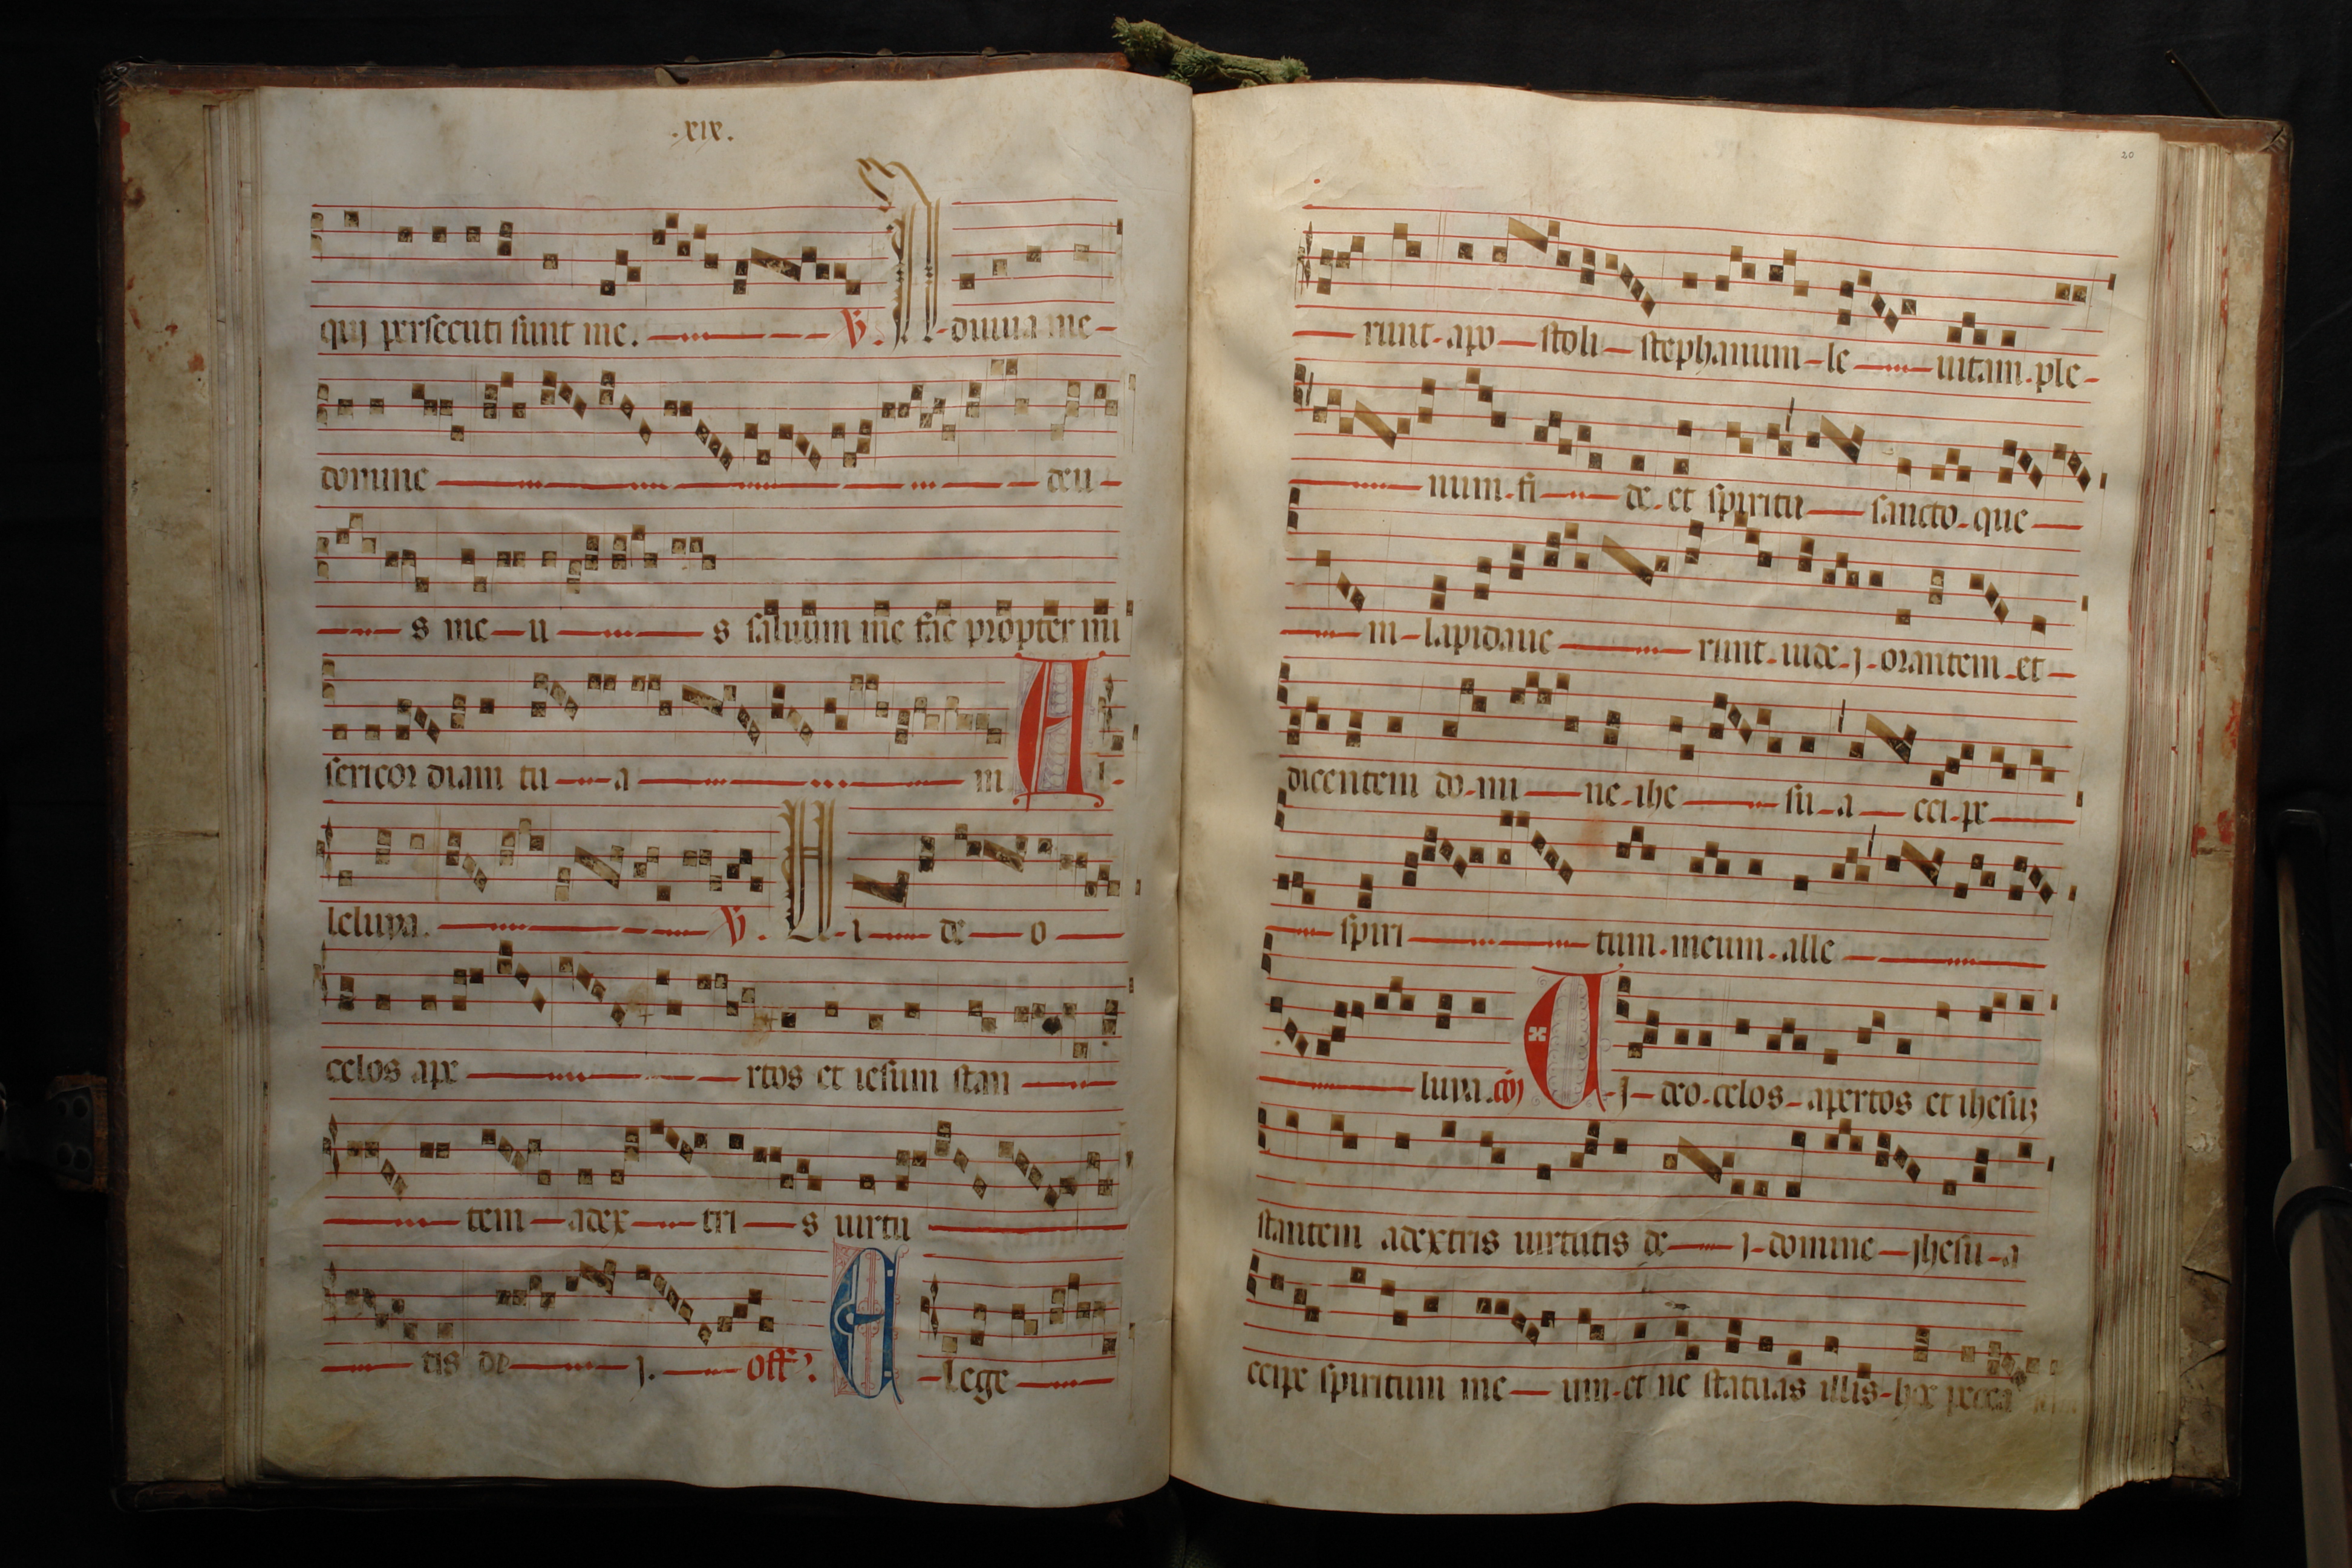 .xix.
quj persecuti sunt me. V. A-diuua me-
domine deu-
s me-u s saluum me fac propter mi
sericordiam tu-a m Al-
leluya. V. Ui-de-o
celos ape rtos et iesum stan
tem-adex-tri-s uirtu
tis de j. off? E-lege
20
runt-apo-stoli-stephanum-le-uitam.ple-
num.fi-de.et spiritu-sancto.que-
m-lapidaue runt.iude.j.orantem.et-
dicentem do-mi-ne-ihe su-a-cci-pe
spiri tum.meum.alle
luya.coj U-j-deo.celos-apertos et ihesuz
stantem adextris uirtutis de-j-domine-jhesu-a
ccipe spiritum me-um-et ne statuas illis-hoc pecca